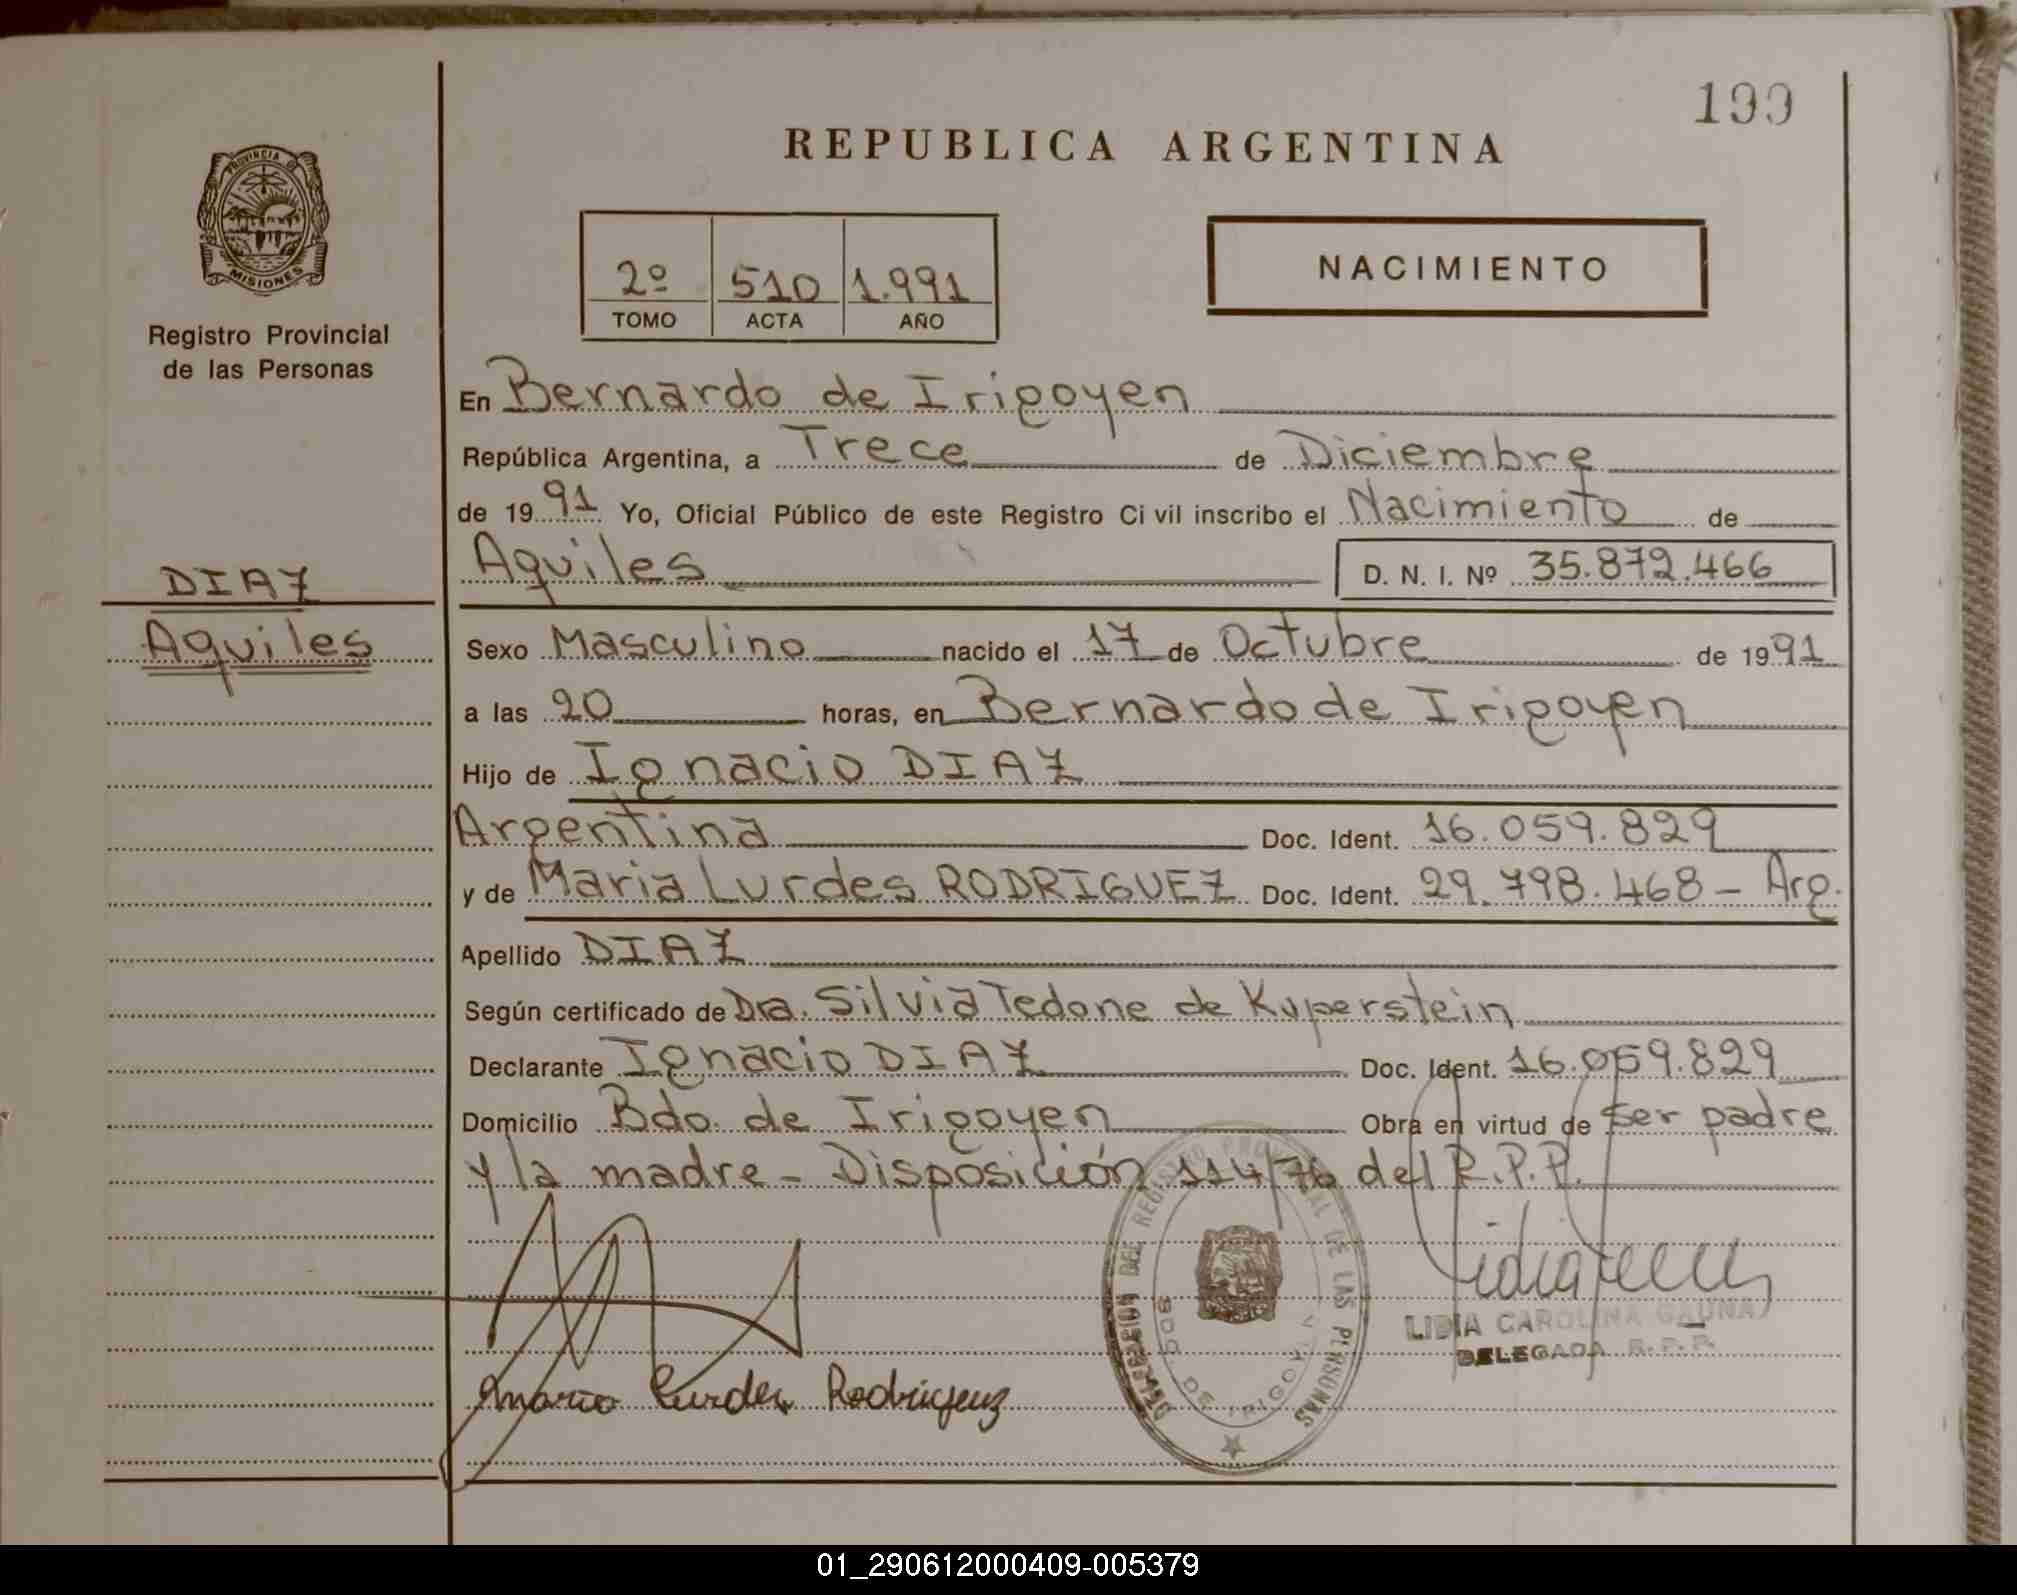 199
REPUBLICA ARGENTINA
PROVINCIA DE
MISIONES
Registro Provincial
de las Personas
2º 510 1.991
TOMO ACTA AÑO
NACIMIENTO
En Bernardo de Irigoyen
República Argentina, a Trece de Diciembre
de 1991 Yo, Oficial Público de este Registro Civil inscribo el Nacimiento de
Aquiles D. N. I. Nº 35.872.466
DIAZ
Aquiles
Sexo Masculino nacido el 17 de Octubre de 1991
a las 20 horas, en Bernardo de Irigoyen
Hijo de Ignacio DIAZ
Argentina Doc. Ident. 16.059.829
y de Maria Lurdes RODRIGUEZ Doc. Ident. 29.798.468 - Arg.
Apellido DIAZ
Según certificado de Dra. Silvia Tedone de Kuperstein
Declarante Ignacio DIAZ Doc. Ident. 16.059.829
Domicilio Bdo. de Irigoyen Obra en virtud de ser padre
y la madre - Disposición 114/76 del R.P.P.
DELEGACION DEL REGISTRO PROVINCIAL DE LAS PERSONAS
BDO. DE IRIGOYEN
LIDIA CAROLINA GAUNA
DELEGADA R.P.P.
Maria Lurdes Rodriguez
01_290612000409-005379